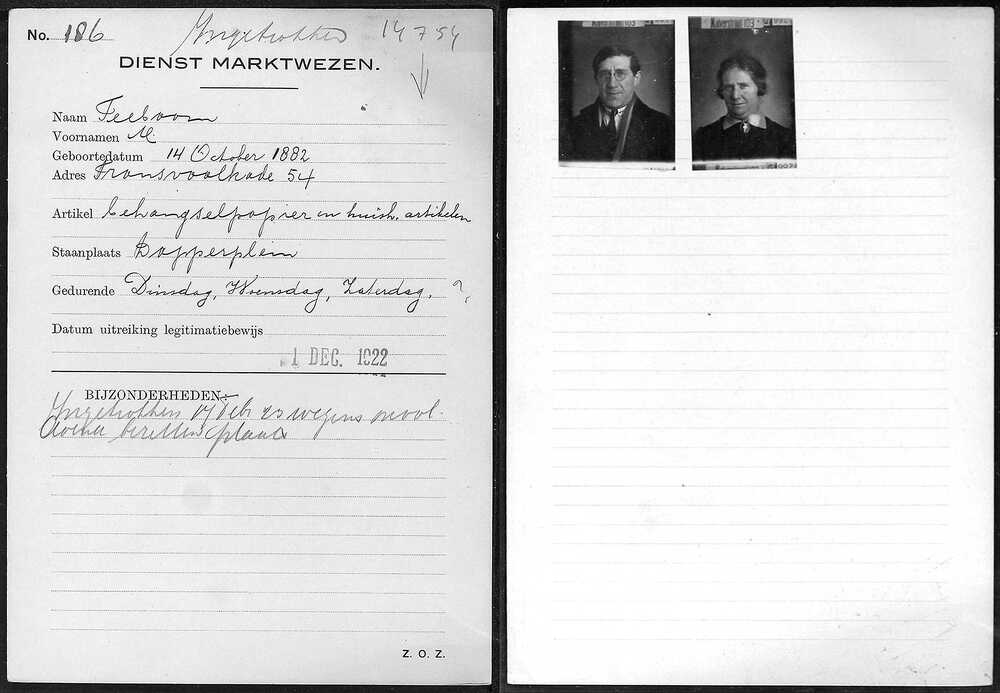 No. 186 Ingetrokken 14 7 54
DIENST MARKTWEZEN.
Naam Teeboom
Voornamen M.
Geboortedatum 14 October 1882
Adres Transvaalkade 54
Artikel behangselpapier en huish. artikelen
Staanplaats Dapperplein
Gedurende Dinsdag, Woensdag, Zaterdag. ?,
Datum uitreiking legitimatiebewijs
1 DEC. 1922
BIJZONDERHEDEN:
Ingetrokken 17 Feb 23 wegens onvol-
doende bezetten plaats
Z. O. Z.
Kalverstraat 103
Kalverstraat 103
007